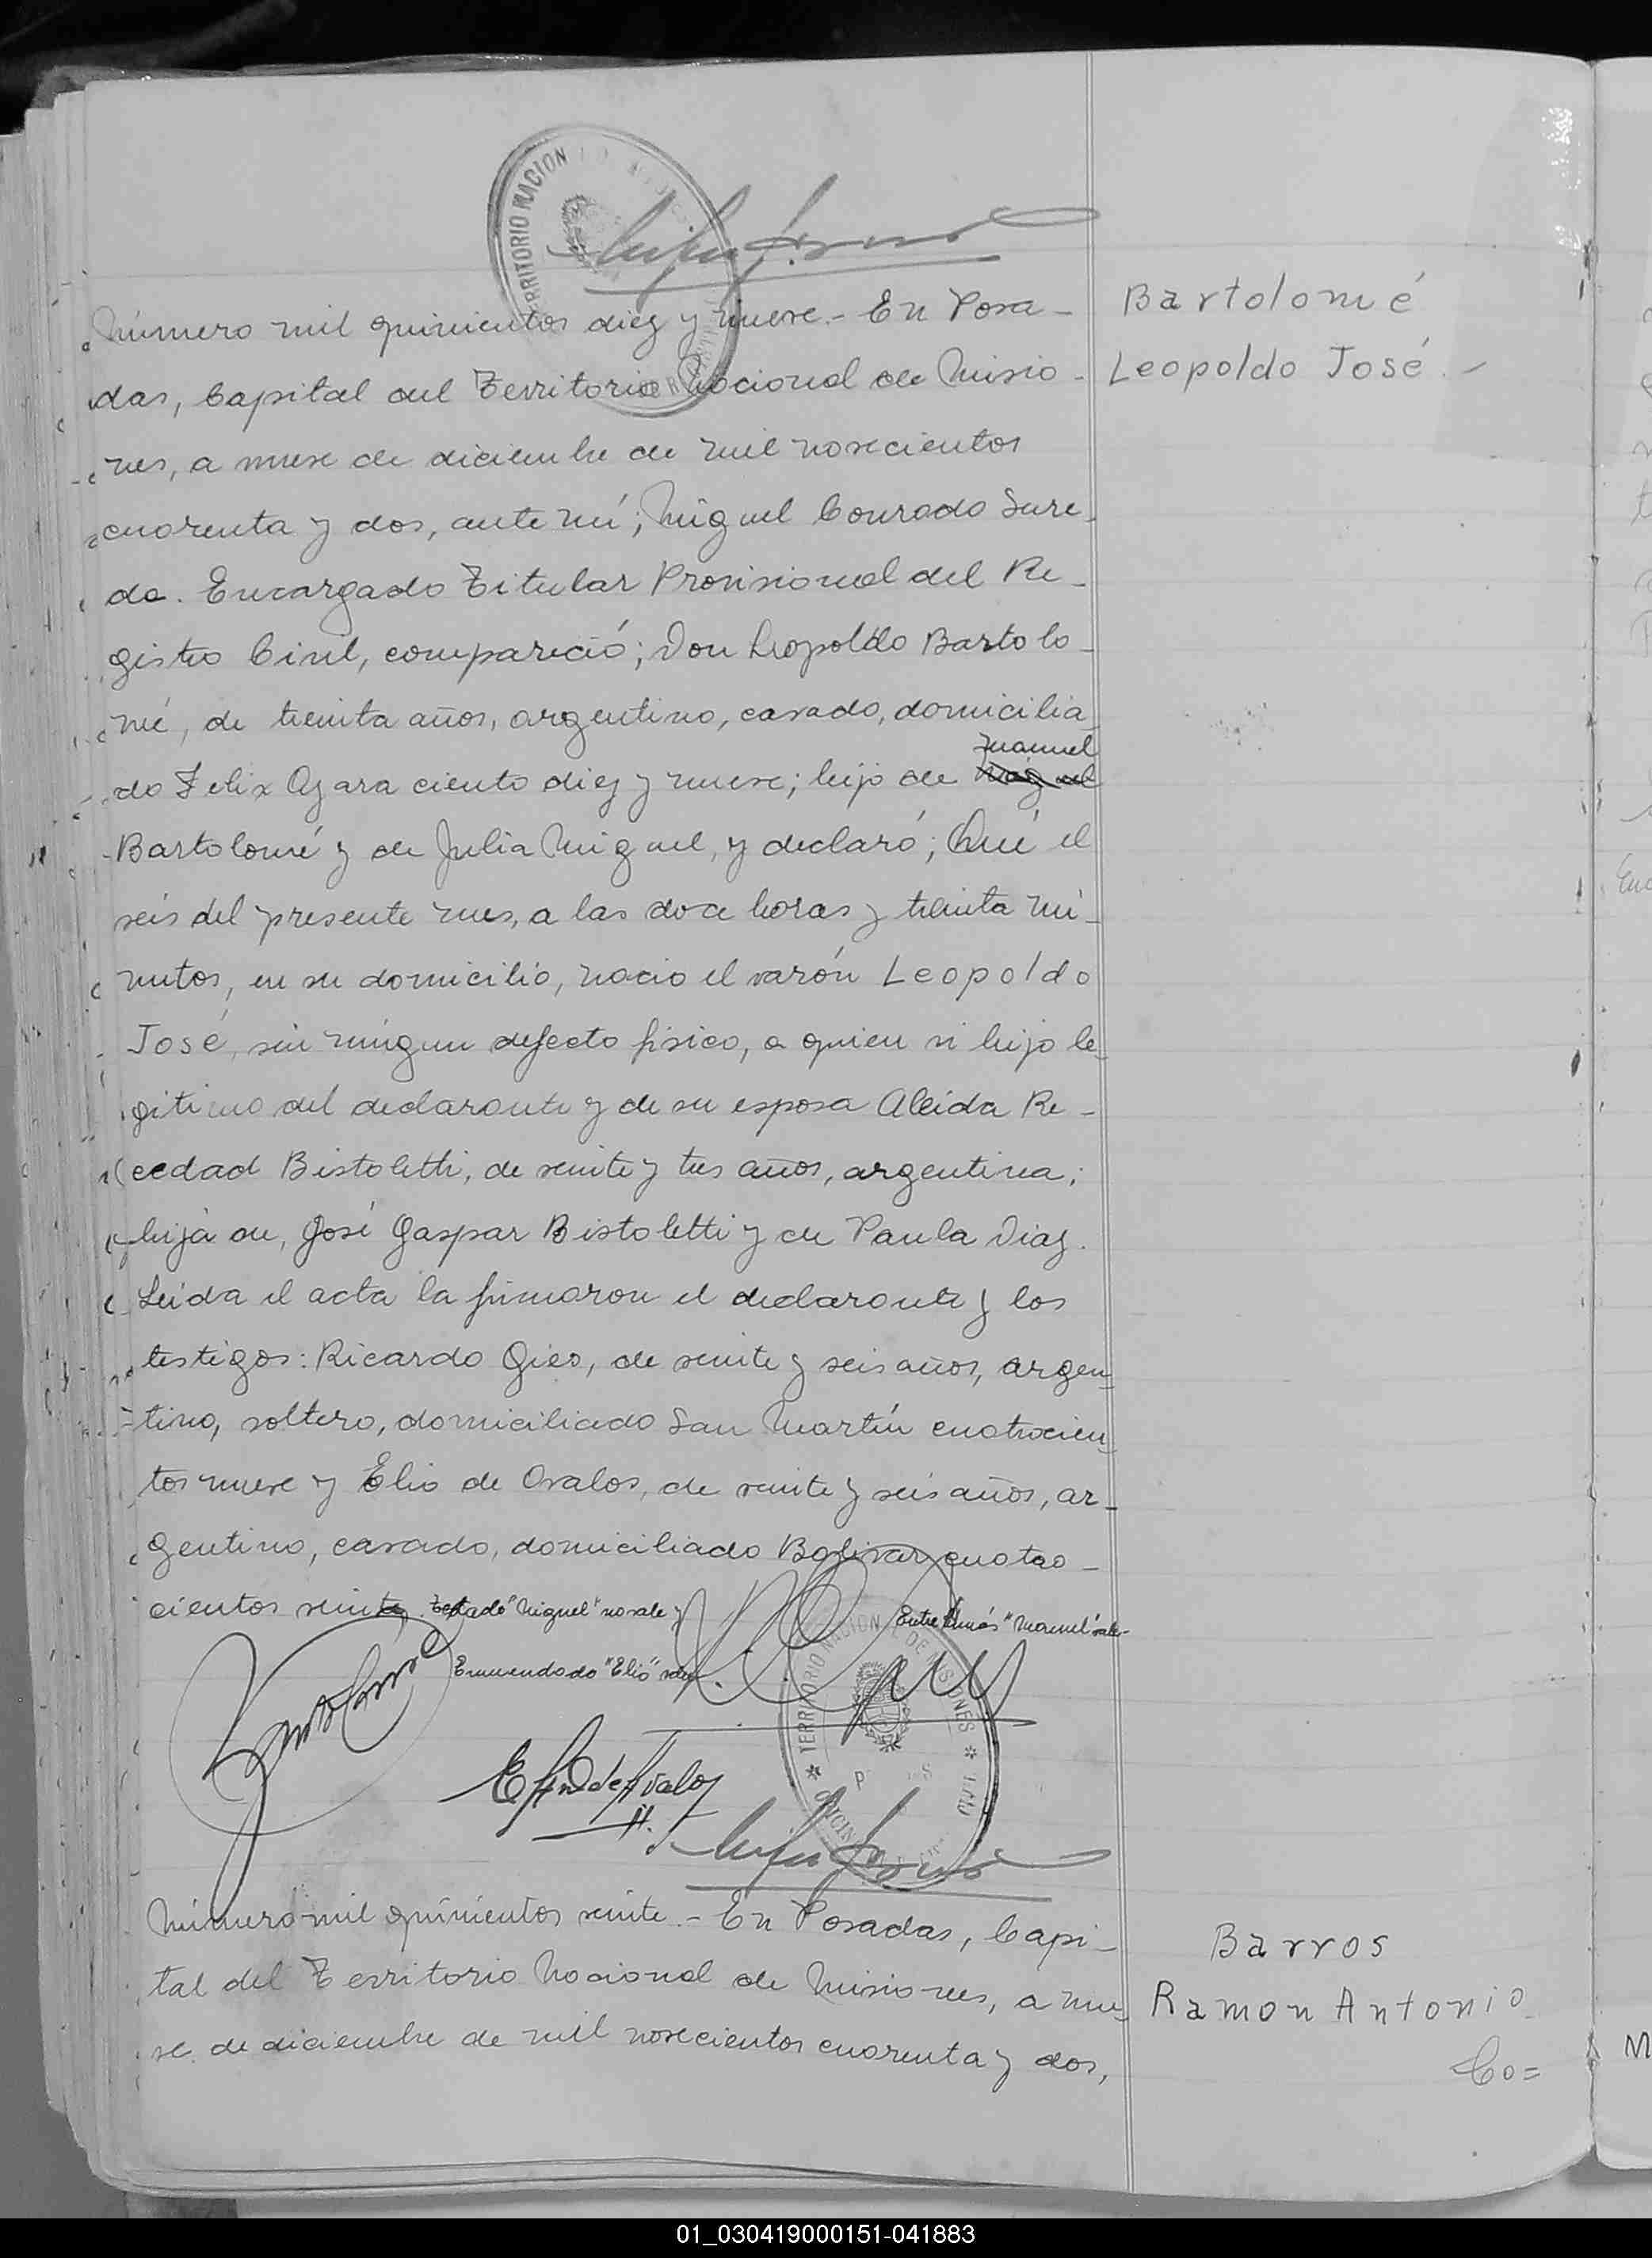 Número mil quinientos diez y nueve.- En Posa-
das, Capital del Territorio Nacional de Misio-
nes, a nueve de diciembre de mil novecientos
cuarenta y dos, ante mí; Miguel Conrado Sure-
da. Encargado Titular Provisional del Re-
gistro Civil, compareció; Don Leopoldo Bartolo-
mé, de treinta años, argentino, casado, domicilia
Manuel
do Felix Azara ciento diez y nueve; hijo de Miguel
Bartolomé y de Julia Miguel, y declaró; Qué el
seis del presente mes, a las doce horas y treinta mi-
nutos, en su domicilio, nacio el varón Leopoldo
José, sin ningun defecto fisico, a quien vi hijo le-
gitimo del declarante y de su esposa Aleida Re-
eedad Bistoletti, de veinte y tres años, argentina;
hija de, José Gaspar Bistoletti y de Paula Diaz.
Leida el acta la firmaron el declarante y los
testigos: Ricardo Gies, de veinte y seis años, argen-
tino, soltero, domiciliado San Martín cuatrocien-
tos nueve y Elio de Avalos, de veinte y seis años, ar-
gentino, casado, domiciliado Bolivar cuatro-
cientos veinte. Testado "Miguel" no vale y Entre lineas "Manuel" vale-
Enmendado "Elio" vale.
Bartolomé
Bartolomé
Leopoldo José.-
TERRITORIO NACIONAL DE MISIONES
Número mil quinientos veinte.- En Posadas, Capi-
tal del Territorio Nacional de Misiones, a nue-
ve de diciembre de mil novecientos cuarenta y dos,
Barros
Ramon Antonio
Co=
01_030419000151-041883